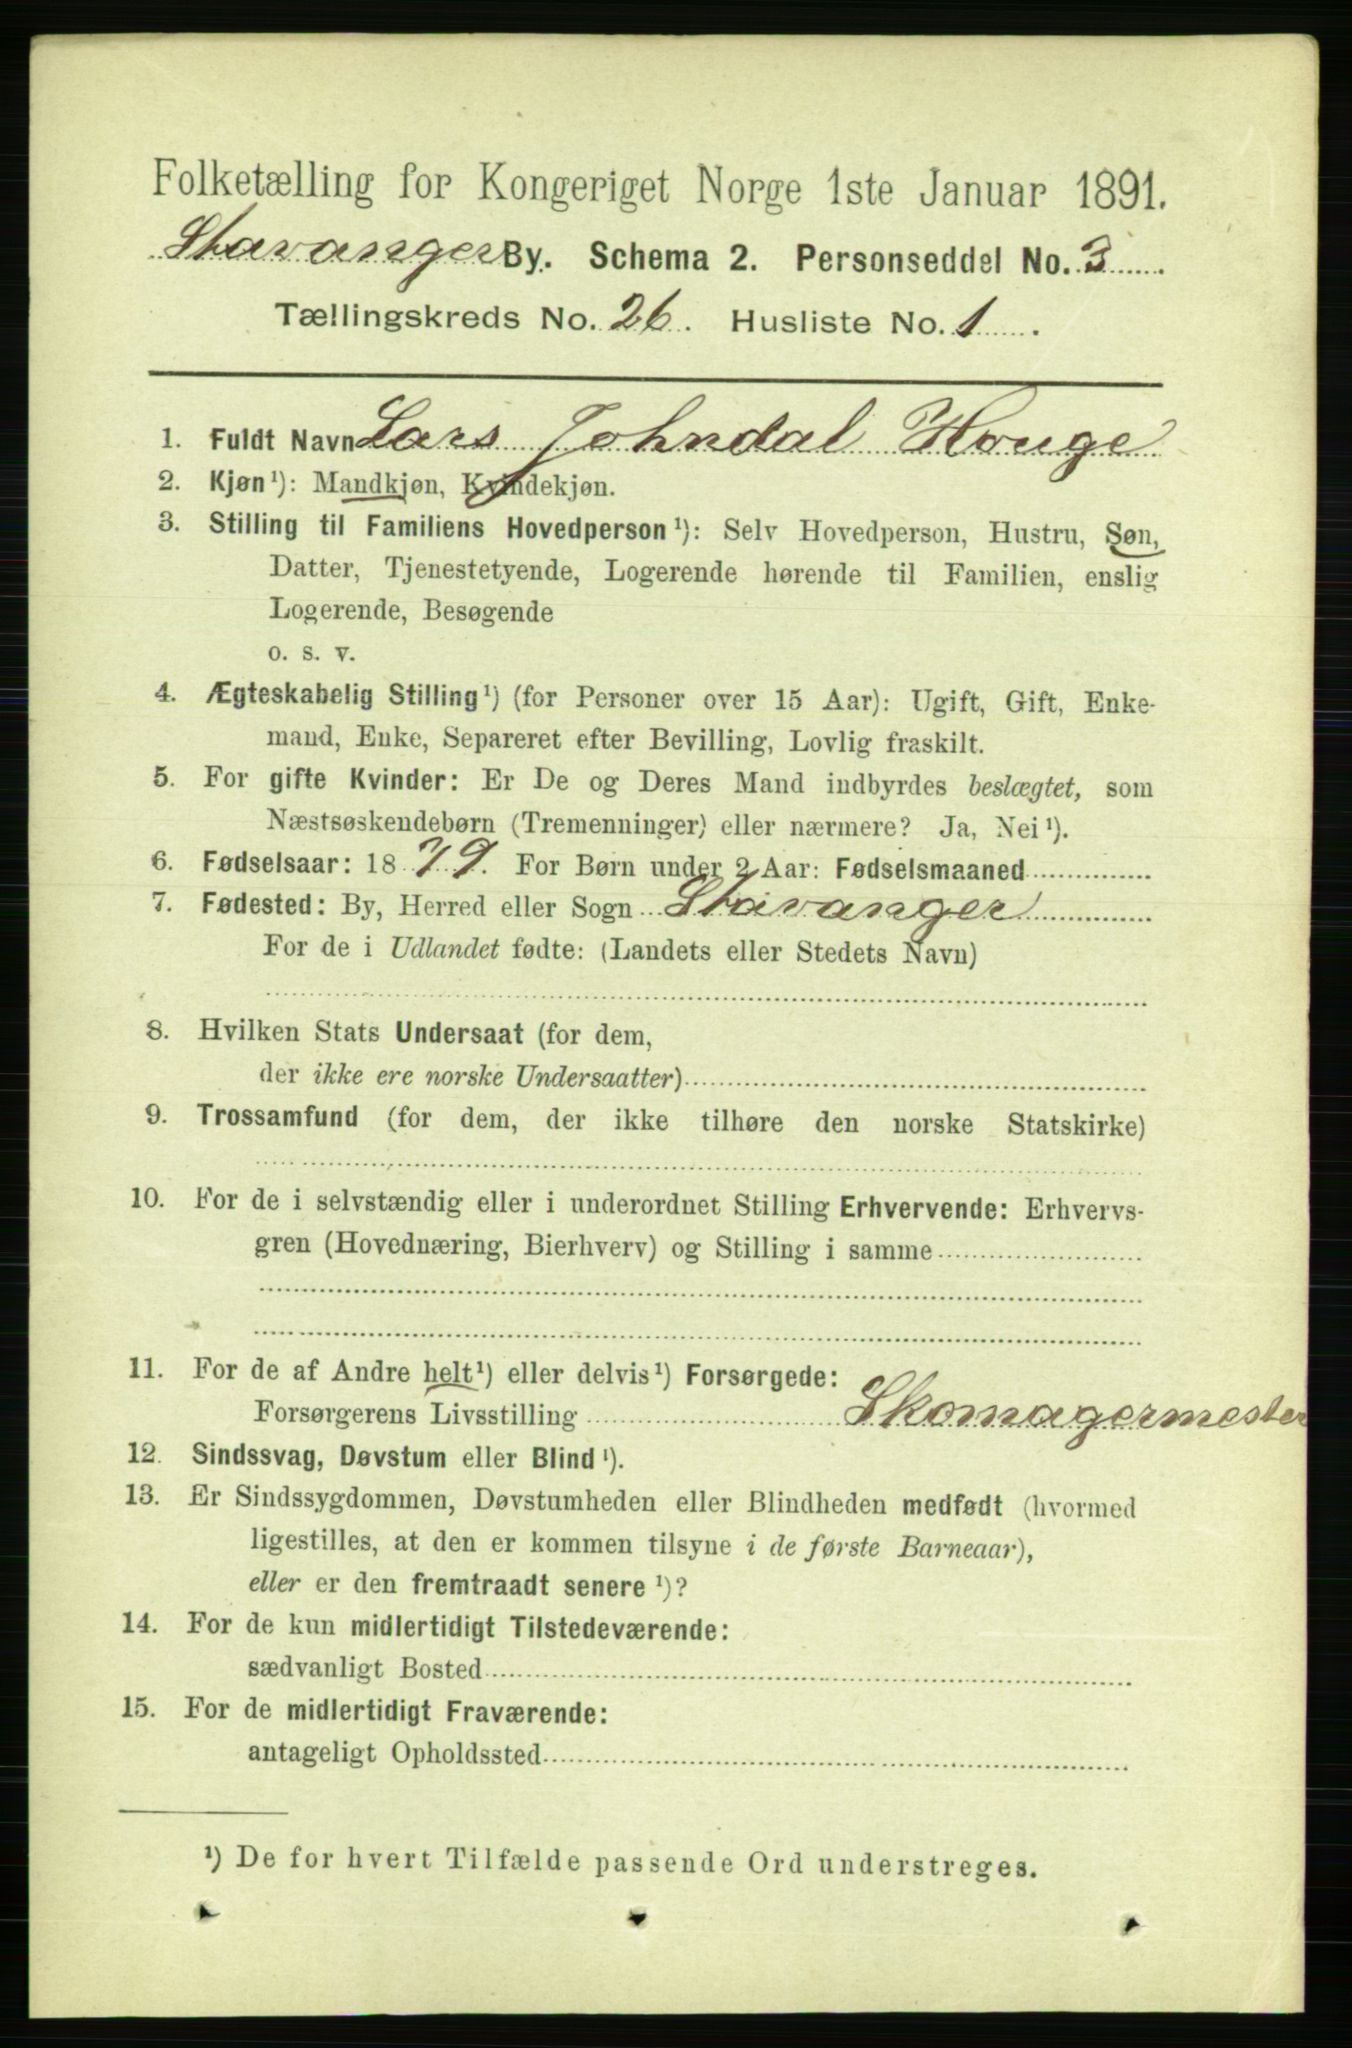 Folketælling for Kongeriget Norge 1ste Januar 1891.
Stavanger By. Schema 2. Personseddel No. 3
Tællingskreds No. 26. Husliste No. 1.
1. Fuldt Navn Lars Johndal Houge
2. Kjøn¹): Mandkjøn, Kvindekjøn.
3. Stilling til Familiens Hovedperson¹): Selv Hovedperson, Hustru, Søn,
Datter, Tjenestetyende, Logerende hørende til Familien, enslig
Logerende, Besøgende
o. s. v.
4. Ægteskabelig Stilling¹) (for Personer over 15 Aar): Ugift, Gift, Enke-
mand, Enke, Separeret efter Bevilling, Lovlig fraskilt.
5. For gifte Kvinder: Er De og Deres Mand indbyrdes beslægtet, som
Næstsøskendebørn (Tremenninger) eller nærmere? Ja, Nei¹).
6. Fødselsaar: 1879. For Børn under 2 Aar: Fødselsmaaned
7. Fødested: By, Herred eller Sogn Stavanger
For de i Udlandet fødte: (Landets eller Stedets Navn)
8. Hvilken Stats Undersaat (for dem,
der ikke ere norske Undersaatter)
9. Trossamfund (for dem, der ikke tilhøre den norske Statskirke)
10. For de i selvstændig eller i underordnet Stilling Erhvervende: Erhvervs-
gren (Hovednæring, Bierhverv) og Stilling i samme
11. For de af Andre helt¹) eller delvis¹) Forsørgede:
Forsørgerens Livsstilling Skomagermester
12. Sindssvag, Døvstum eller Blind¹).
13. Er Sindssygdommen, Døvstumheden eller Blindheden medfødt (hvormed
ligestilles, at den er kommen tilsyne i de første Barneaar),
eller er den fremtraadt senere¹)?
14. For de kun midlertidigt Tilstedeværende:
sædvanligt Bosted
15. For de midlertidigt Fraværende:
antageligt Opholdssted
¹) De for hvert Tilfælde passende Ord understreges.